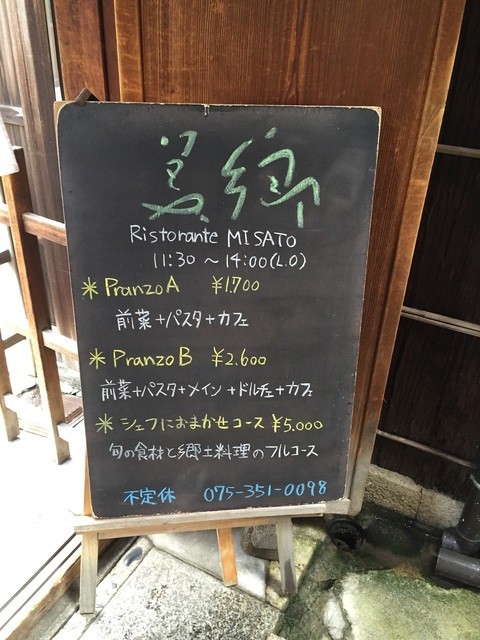 美郷
Ristorante MISATO
11:30 ～ 14:00(L.O)
＊Pranzo A ¥1.700
前菜+パスタ+カフェ
＊Pranzo B ¥2.600
前菜+パスタ+メイン+ドルチェ+カフェ
＊シェフにおまかせコース ¥5.000
旬の食材と郷土料理のフルコース
不定休 075-351-0098